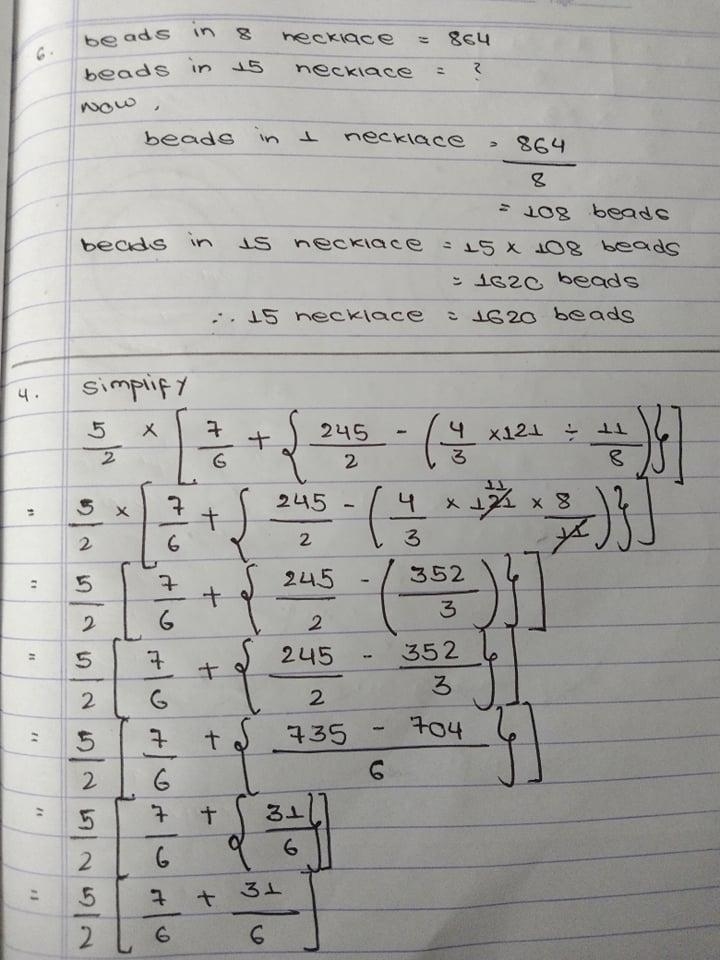 6. beads in 8 necklace = 864
beads in 15 necklace = ?
Now,
beads in 1 necklace = 864/8
= 108 beads
beads in 15 necklace = 15 x 108 beads
= 1620 beads
∴ 15 necklace = 1620 beads
4. simplify
5/2 × [7/6 + {245/2 - (4/3 ×121 ÷ 11/8)}]
= 5/2 × [7/6 + {245/2 - (4/3 × 121 11 × 8/11)}]
= 5/2 [7/6 + {245/2 - (352/3)}]
= 5/2 [7/6 + {245/2 - 352/3}]
= 5/2 [7/6 + {735 - 704/6}]
= 5/2 [7/6 + {31/6}]
= 5/2 [7/6 + 31/6]